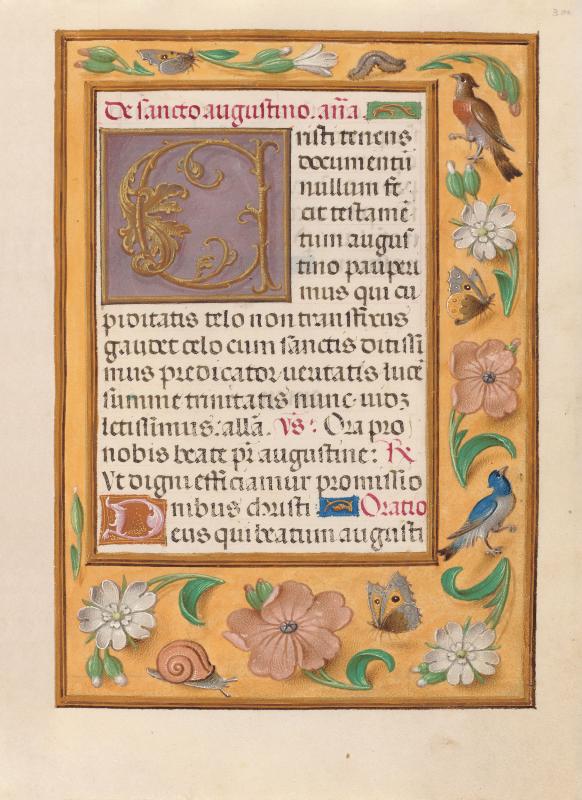 De sancto augustino. an̄a.
Cristi tenens
documentū
nullum fe
cit testamē
tum augus
tino pauperi
mus qui cu
piditatis telo non transfixus
gaudet celo cum sanctis ditissi
mus predicator ueritatis lucē
summe trinitatis nunc uidꝫ
letissimus. all̄a. Vs: Ora pro
nobis beate pr̄ augustine: R
Vt digni efficiamur promissio
nibus christi. Oratio
Deus qui beatum augusti